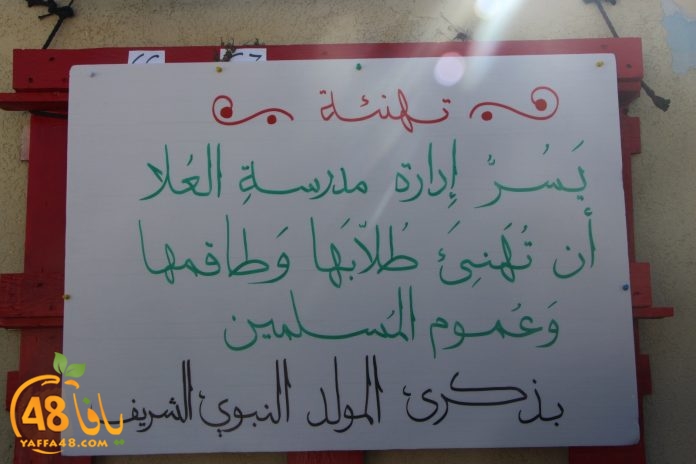 تهنئة
يَسُرُّ إِدارة مدرسةِ العُلا
أن تُهَنِئَ طُلاّبَها وَطاقمها
وَعُموم المُسلمين
بذكرى المولد النبوي الشريف
يافا 48
YAFFA48.COM